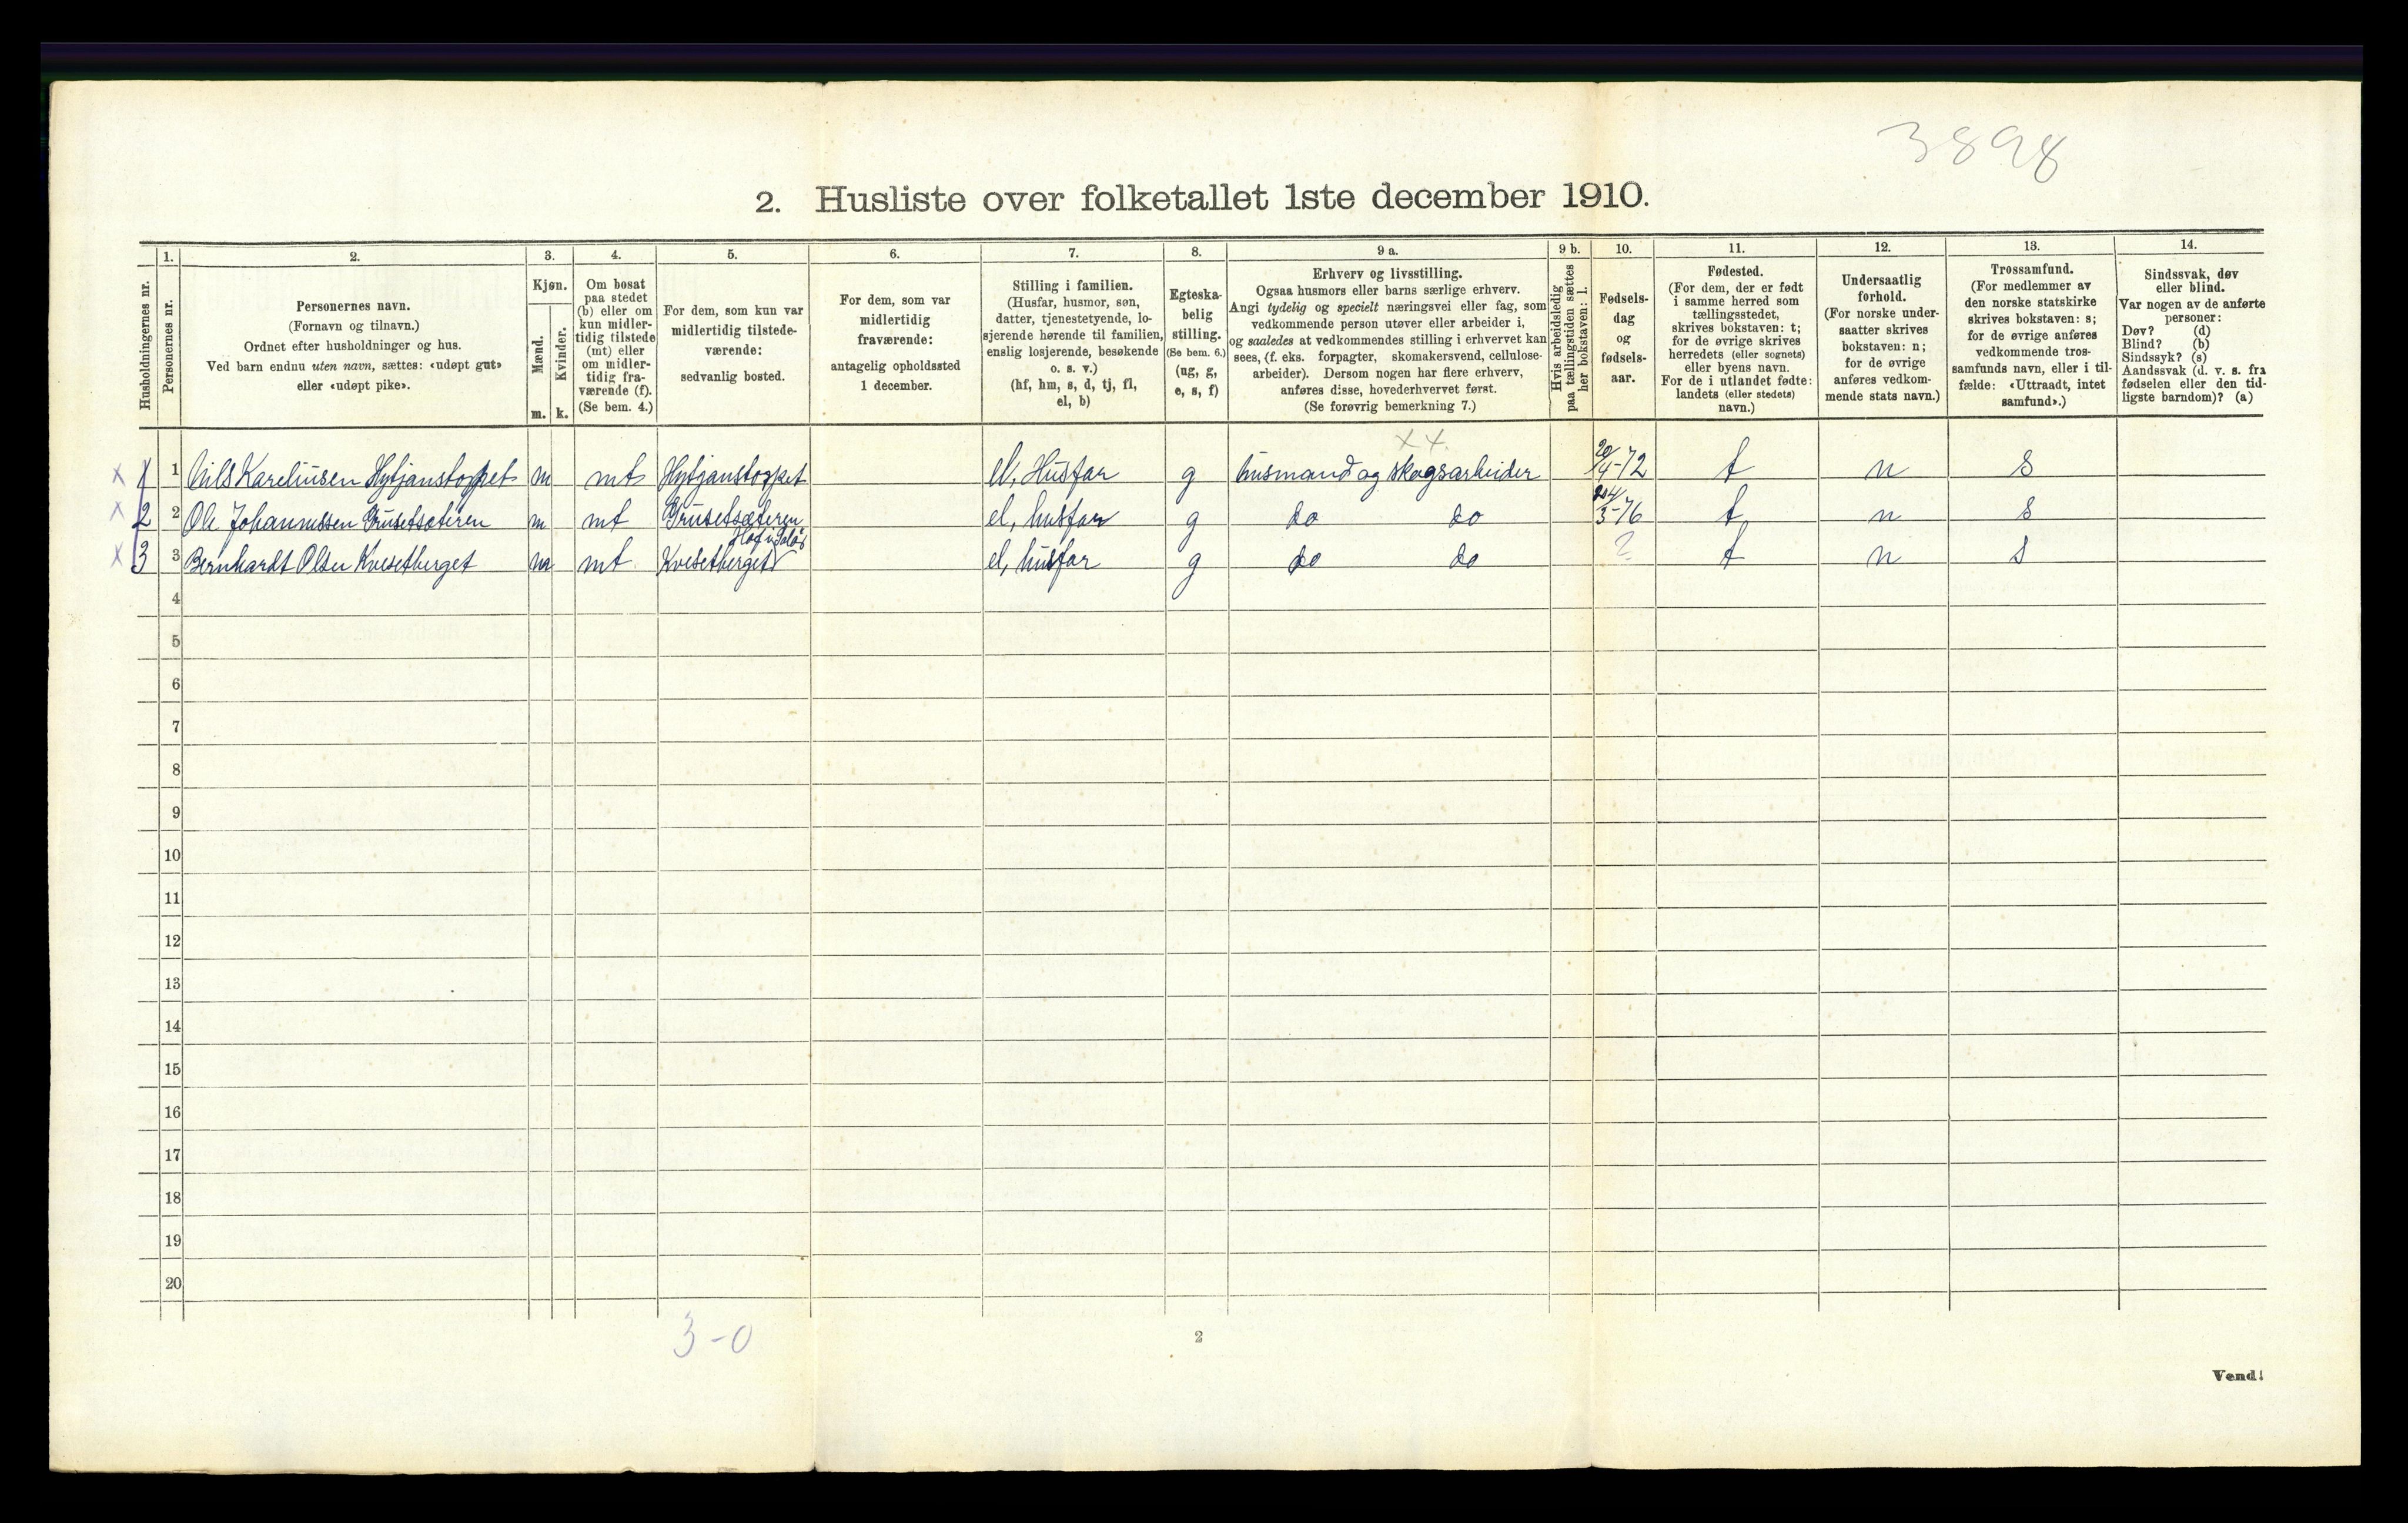 3898
2. Husliste over folketallet 1ste december 1910.
Husholdningernes nr.
1.
Personernes nr.
2.
Personernes navn.
(Fornavn og tilnavn.)
Ordnet efter husholdninger og hus.
Ved barn endnu uten navn, sættes: «udøpt gut»
eller «udøpt pike».
3.
Kjøn.
Mænd.
Kvinder.
m. k.
4.
Om bosat
paa stedet
(b) eller om
kun midler-
tidig tilstede
(mt) eller
om midler-
tidig fra-
værende (f).
(Se bem. 4.)
5.
For dem, som kun var
midlertidig tilstede-
værende:
sedvanlig bosted.
6.
For dem, som var
midlertidig
fraværende:
antagelig opholdssted
1 december.
7.
Stilling i familien.
(Husfar, husmor, søn,
datter, tjenestetyende, lo-
sjerende hørende til familien,
enslig losjerende, besøkende
o. s. v.)
(hf, hm, s, d, tj, fl,
el, b)
8.
Egteska-
belig
stilling.
(Se bem. 6.)
(ug, g,
e, s, f)
9 a.
Erhverv og livsstilling.
Ogsaa husmors eller barns særlige erhverv.
Angi tydelig og specielt næringsvei eller fag, som
vedkommende person utøver eller arbeider i,
og saaledes at vedkommendes stilling i erhvervet kan
sees, (f. eks. forpagter, skomakersvend, cellulose-
arbeider). Dersom nogen har flere erhverv,
anføres disse, hovederhvervet først.
(Se forøvrig bemerkning 7.)
9 b.
Hvis arbeidsledig
paa tællingstiden sættes
her bokstaven: l.
10.
Fødsels-
dag
og
fødsels-
aar.
11.
Fødested.
(For dem, der er født
i samme herred som
tællingsstedet,
skrives bokstaven: t;
for de øvrige skrives
herredets (eller sognets)
eller byens navn.
For de i utlandet fødte:
landets (eller stedets)
navn.)
12.
Undersaatlig
forhold.
(For norske under-
saatter skrives
bokstaven: n;
for de øvrige
anføres vedkom-
mende stats navn.)
13.
Trossamfund.
(For medlemmer av
den norske statskirke
skrives bokstaven: s;
for de øvrige anføres
vedkommende tros-
samfunds navn, eller i til-
fælde: «Uttraadt, intet
samfund».)
14.
Sindssvak, døv
eller blind.
Var nogen av de anførte
personer:
Døv? (d)
Blind? (b)
Sindssyk? (s)
Aandssvak (d. v. s. fra
fødselen eller den tid-
ligste barndom)? (a)
x 1 1 Nils Kareliusen Hytjanstorpet m mt Hytjanstorpet el, Husfar g husmand og skogsarbeider 20/4-72 t n s
x 2 2 Ole Johannessen Grusetsæteren m mt Grusetsæteren el, husfar g do do 3-76 t n s
Hof i Solør
x 3 3 Bernhardt Olsen Kvesetberget m mt Kvesetberget el, husfar g do do ? t n s
4
5
6
7
8
9
10
11
12
13
14
15
16
17
18
19
20
3-0
2
Vend!